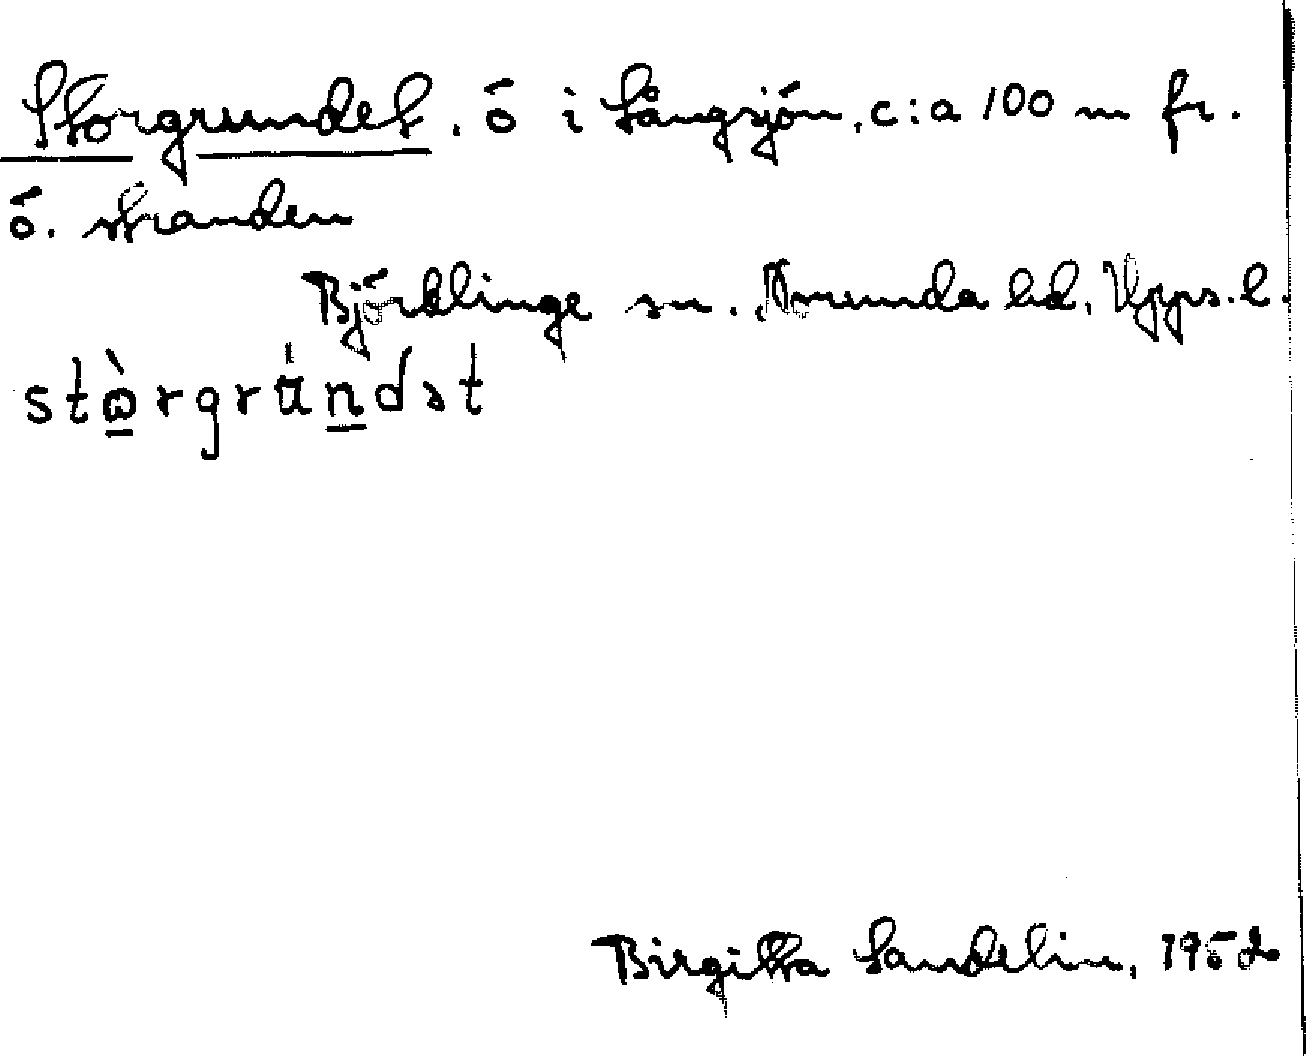 Storgrundet. ö i Långsjön, c:a 100 m fr.
ö. stranden
Björklinge sn. Norunda hd. Upps. l.
stòrgrund​ət
Birgitta Sandelin, 1952